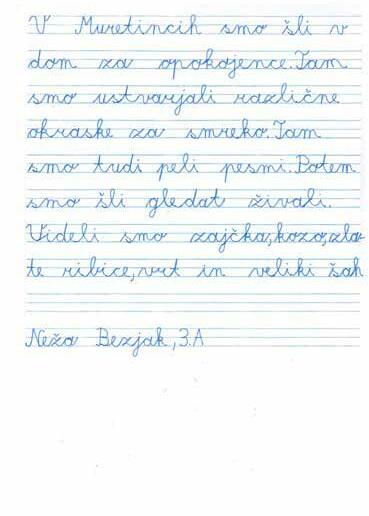 V Muretincih smo šli v
dom za opokojence. Tam
smo ustvarjali različne
okraske za smreko. Tam
smo tudi peli pesmi. Potem
smo šli gledat živali.
Videli smo zajčka, kozo, zla-
te ribice, vrt in veliki šah
Neža Bezjak, 3. A